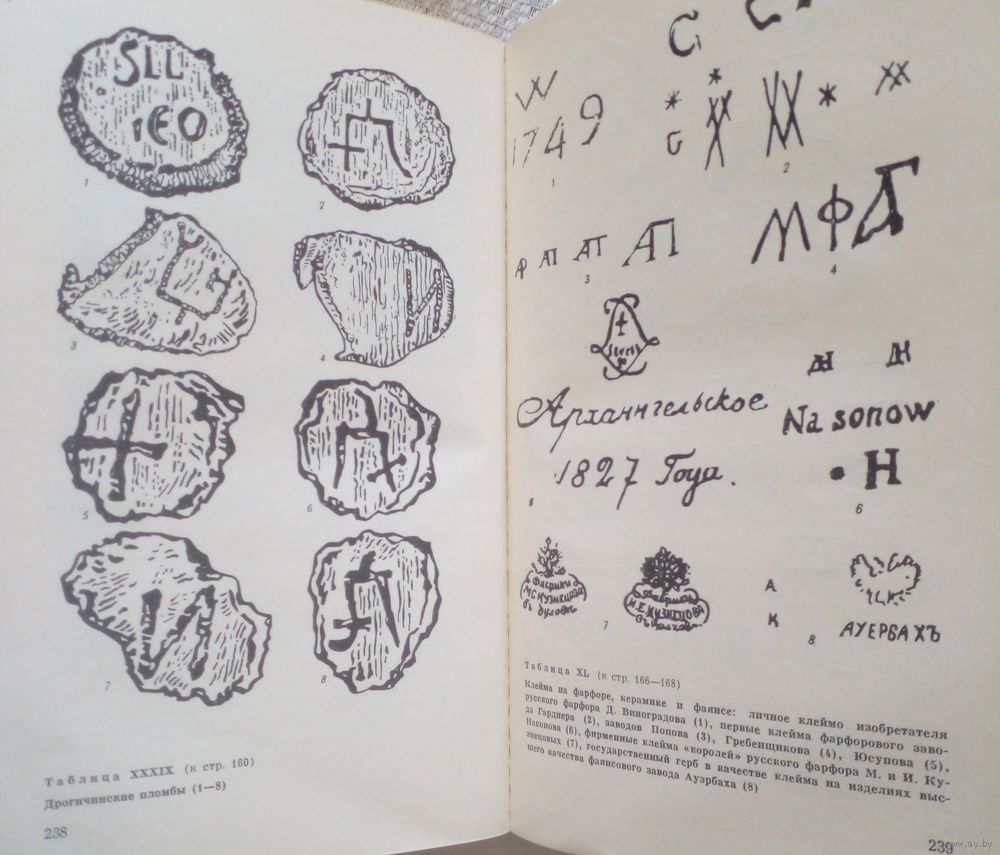 SLL
ιЄO
1
2
3
4
5
6
7
8
Таблица XXXIX (к стр. 160)
Дрогичинские пломбы (1—8)
238
G
W
1749
1
G
2
АП
АТ
АП
3
МФГА
4
Архангельское
1827 Года.
Nasonow
• Н
6
Фабрики
М.С.КУЗНЕЦОВА
Фабрики
И.Е.КУЗНЕЦОВА
7
А
К
8
АУЕРБАХЪ
Таблица XL (к стр. 166—168)
Клейма на фарфоре, керамике и фаянсе: личное клеймо изобретателя
русского фарфора Д. Виноградова (1), первые клейма фарфорового заво-
да Гарднера (2), заводов Попова (3), Гребенщикова (4), Юсупова (5),
Насонова (6), фирменные клейма «королей» русского фарфора М. и И. Ку-
знецовых (7), государственный герб в качестве клейма на изделиях выс-
шего качества фаянсового завода Ауэрбаха (8)
239
www.ay.by